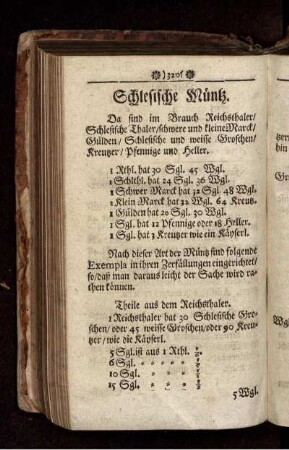 )320(
Schlesische Müntz.
Da sind im Brauch Reichsthaler/
Schlesische Thaler/schwere und kleine Marck/
Gülden/ Schlesische und weisse Groschen/
Kreutzer/ Pfennige und Heller.
1 Rthl. hat 30 Sgl. 45 Wgl.
1 Schlthl. hat 24 Sgl. 36 Wgl.
1 Schwer Marck hat 32 Sgl. 48 Wgl.
1 Klein Marck hat 21 Wgl. 64 Kreutz.
1 Gülden hat 20 Sgl. 30 Wgl.
1 Sgl. hat 12 Pfennige oder 18 Heller.
1 Sgl. hat 3 Kreutzer wie ein Käyserl.
Nach dieser Art der Müntz sind folgende
Exempla in ihren Zerfällungen eingerichtet/
so/daß man daraus leicht der Sache wird ra-
then können.
Theile aus dem Reichsthaler.
1 Reichsthaler hat 30 Schlesische Gro-
schen/ oder 45 weisse Groschen/oder 90 Kreu-
tzer/ wie die Käyserl.
5 Sgl. ist aus 1 Rthl.
6 Sgl.
10 Sgl.
15 Sgl.
5 Wgl.